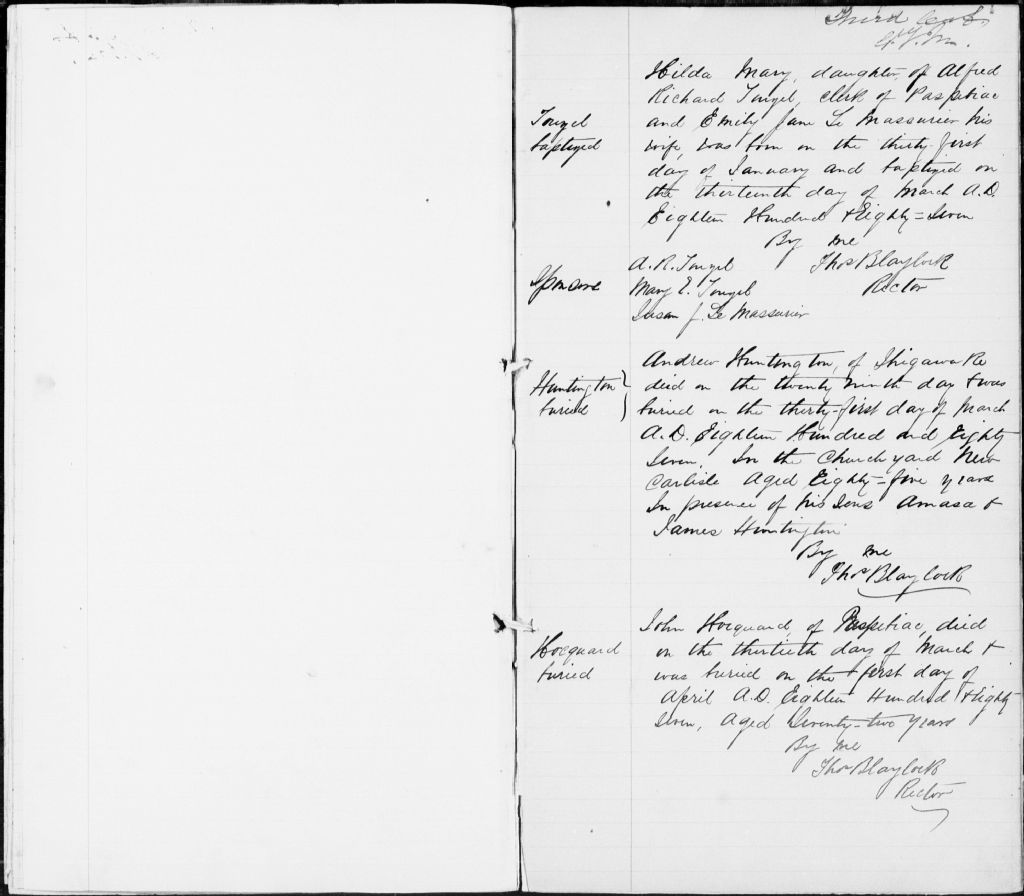 Third
Hilda Mary, daughter of Alfred
Richard Touzel, clerk of Paspebiac
Touzel
baptized
and Emily Jane Le Massurier his
wife, was born on the thirty-first
day of January and baptized on
the thirteenth day of March A.D.
Eighteen Hundred & Eighty=Seven
By me
A. R. Touzel Thos Blaylock
Sponsors Mary E. Touzel Rector
Susan J. Le Massurier
Andrew Huntington, of Shigawake
Huntington
buried
died on the twenty ninth day & was
buried on the thirty-first day of March
A.D. Eighteen Hundred and Eighty
Seven, In the Church yard New
Carlisle Aged Eighty-five years
In presence of his Sons Amasa &
James Huntington
By me
Thos Blaylock
John Hocquard, of Paspebiac, died
Hocquard
buried
on the thirtieth day of March &
was buried on the first day of
April A.D. Eighteen Hundred & Eighty
Seven, Aged Seventy-two years
By me
Thos Blaylock
Rector